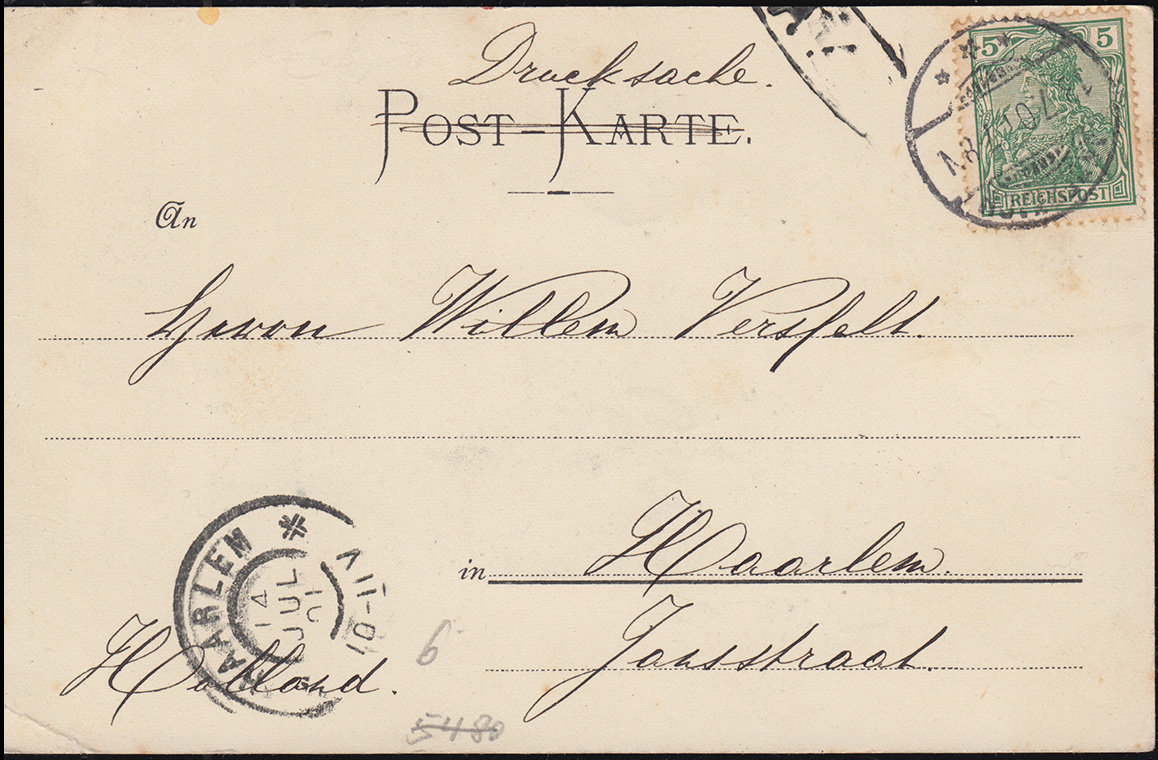 Drucksache.
POST-KARTE.
5 5
REICHSPOST
An
Herrn Willem Versfelt.
in Haarlem.
Jansstraat.
Holland.
HAARLEM
14
JUL
01
10-11 V
6
5480